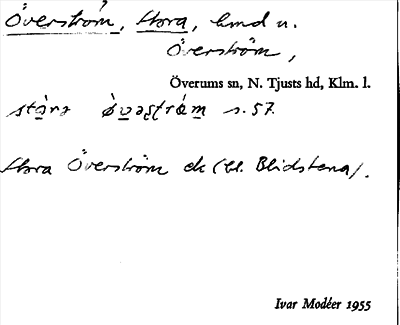 Överström, Stora, hmd u.
Överström,
Överums sn, N. Tjusts hd, Klm. l.
s. 57.
Stora Överström ek (bl. Blidstena).
Ivar Modéer 1955